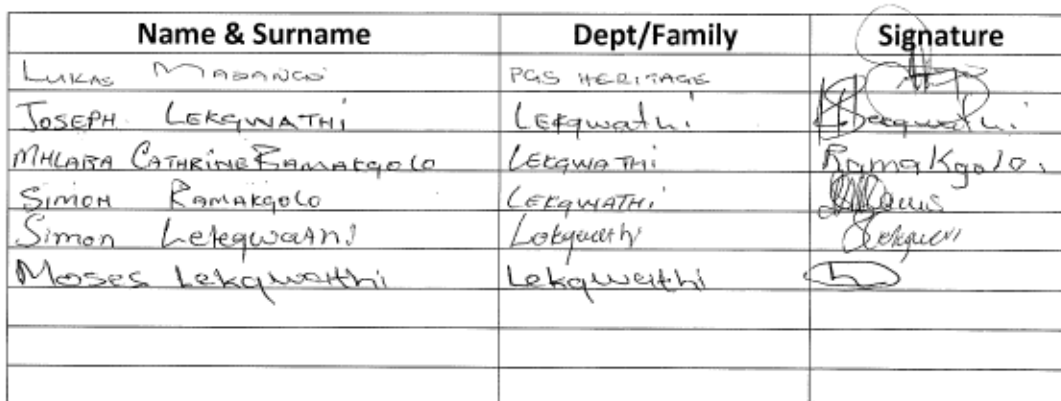 Name & Surname Dept/Family Signature
LUKAS PGS HERITAGE
JOSEPH LEKGWATHI Lekgwathi Lekgwathi
MHLABA CATHRINE RAMAKGOLO LEKGWATHI RamaKgolo.
SIMON RAMAKGOLO LEKGWATHI
Simon Lekgwathi Lekgwathi
Moses Lekgwathi Lekgwathi